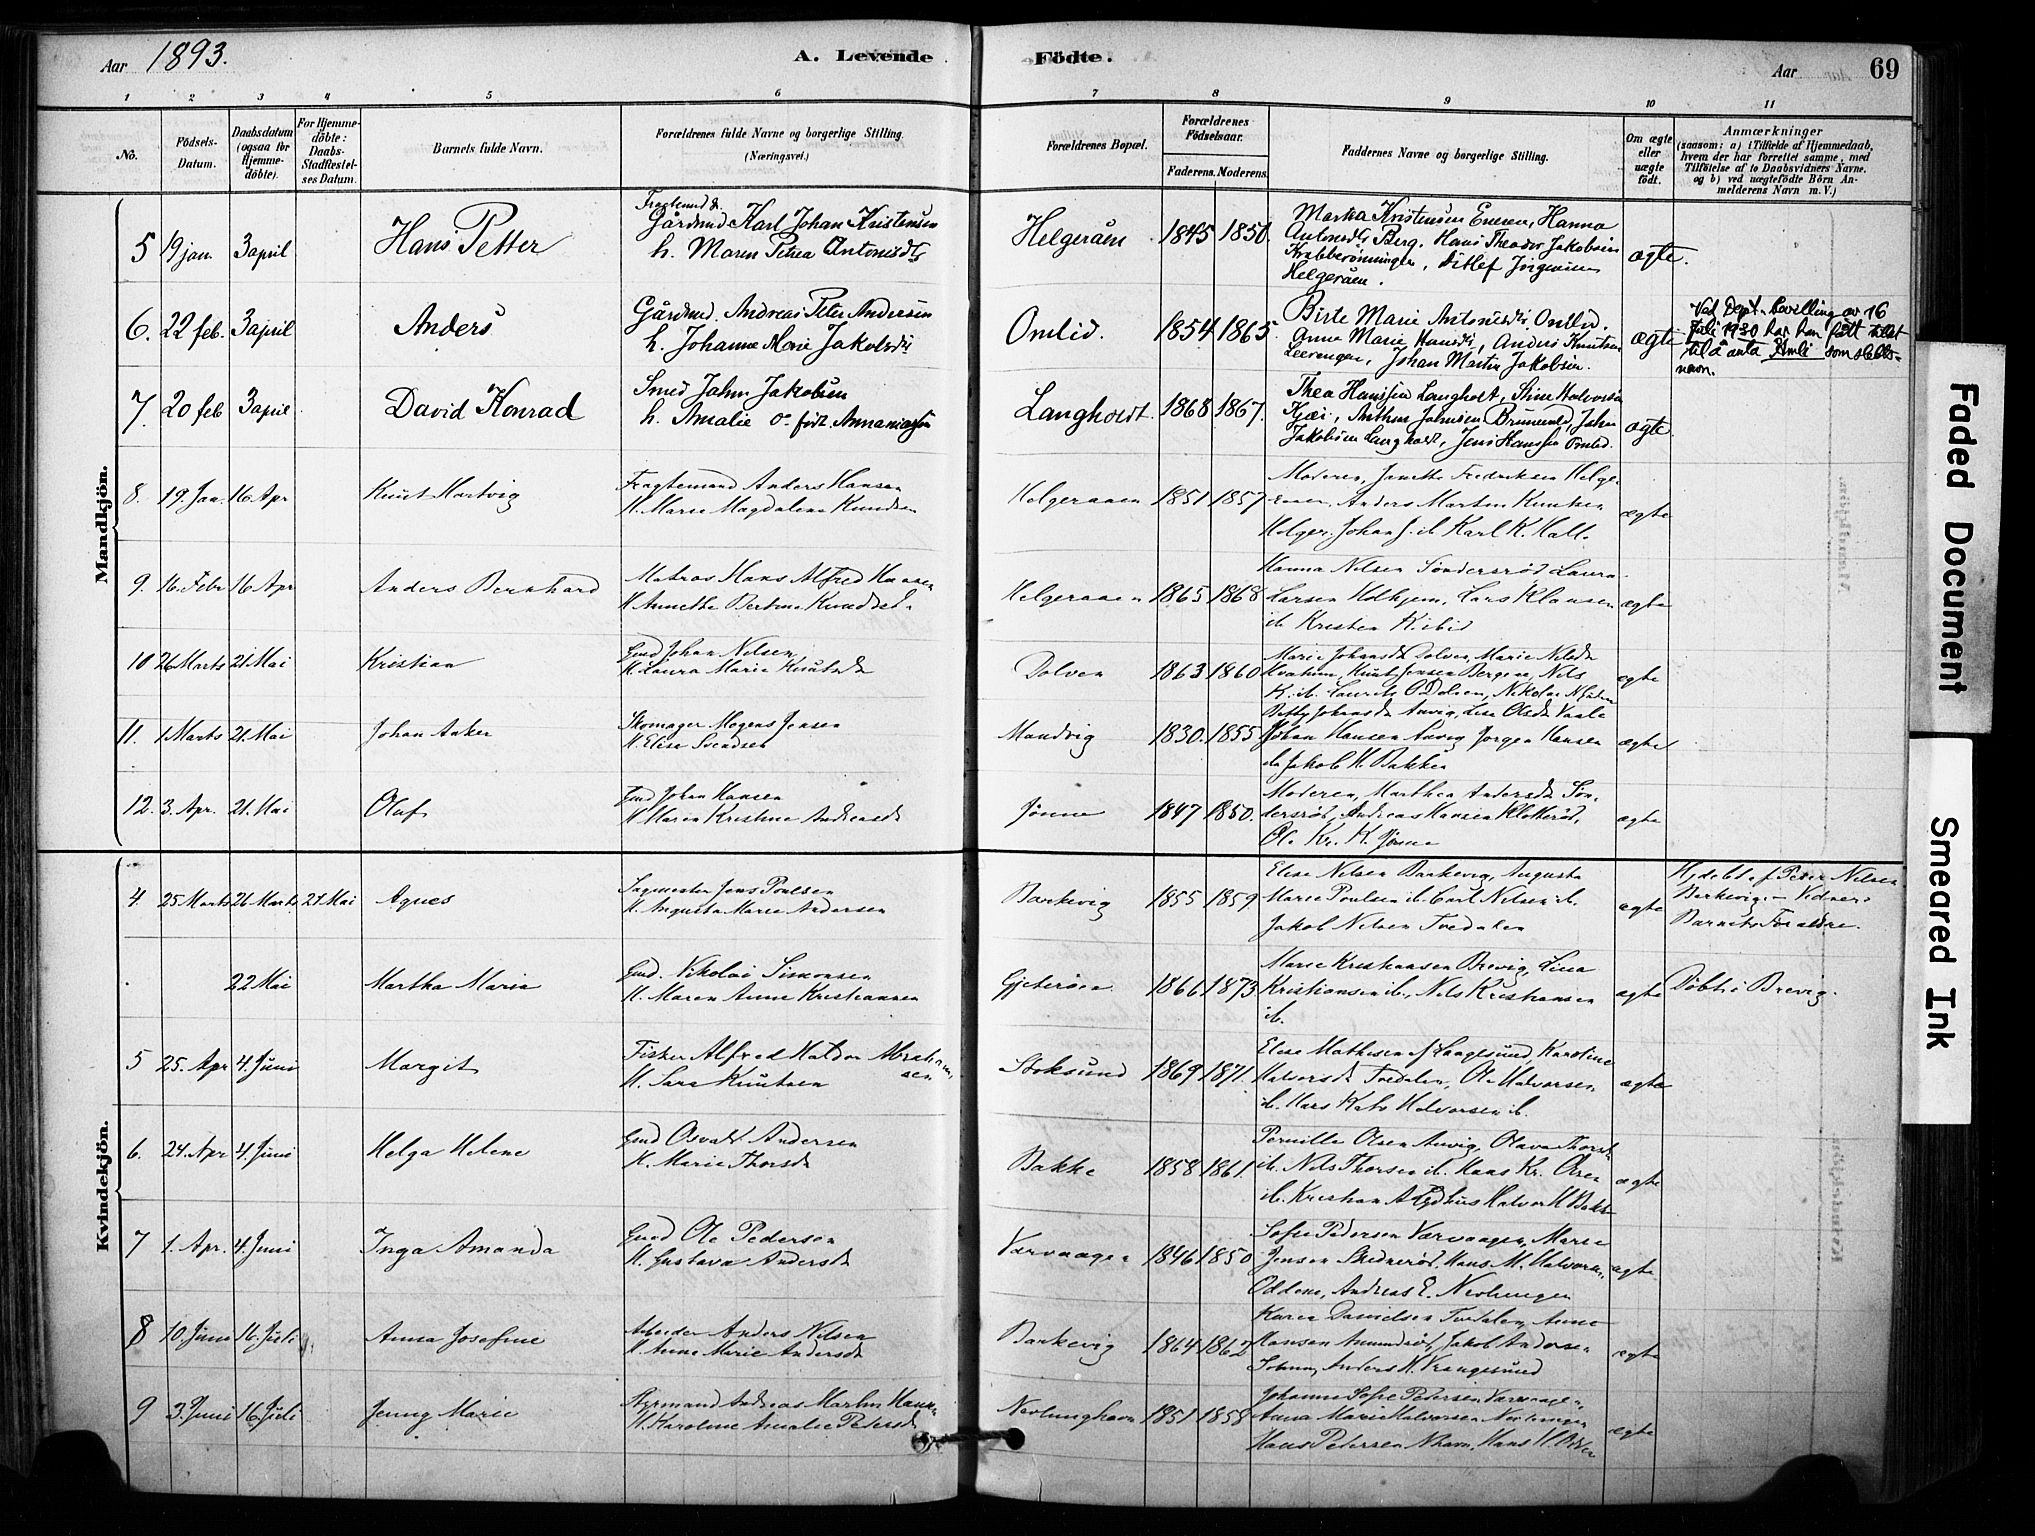 Aar 1893.
A. Levende
Födte.
Aar
69
1 2 3 4 5 6 7 8 9 10 11
No.
Födsels-
Datum.
Daabsdatum
(ogsaa for
Hjemme-
döbte).
For Hjemme-
döbte:
Daabs-
Stadfæstel-
ses Datum.
Barnets fulde Navn.
Forældrenes fulde Navne og borgerlige Stilling.
(Næringsvei.)
Forældrenes Bopæl.
Forældrenes
Födselsaar.
Faderens. Moderens.
Faddernes Navne og borgerlige Stilling.
Om ægte
eller
uægte
født.
Anmærkninger
(saasom: a) i Tilfælde af Hjemmedaab,
hvem der har forrettet samme, med
Tilföielse af to Daabsvidners Navne,
og b) ved uægtefödte Börn An-
melderens Navn m. V.)
Mandkjön.
5 19 jan. 3 april Hans Petter
Gårdmd Karl Johan Kristensen
h. Maren Petrea Antonsdtr
Helgeråen 1845 1850.
Kristensen Hanna
Antonsdtr Berg, Hans Theodor Jakobsen
Krabberønningen, Ditlef Jörgensen
Helgeråen.
ægte.
6. 22 feb. 3 april Anders
Gårdmd. Andreas Peter Andresen
h. Johanne Marie Jakobsdtr
Omlid. 1854 1865.
Birte Marie Antonsdtr Omlid.
Anne Marie Hansdtr, Anders Knutsen
Johan Martin Jakobsen.
ægte
Ved Dept. bevilling av 16
juli 1930 har han fått tillat
til å anta Amli som slekts-
navn.
7. 20 feb 3 april David Konrad
Smed Jahn Jakobsen
h. Amalie O. født
Langholdt. 1868 1867.
Thea Hanssen Langholt, Stine Halvorsen
Kjæi, Anthon Johnsen Jahn
Jakobsen Langholt, Jens Hanssen Omlid.
ægte.
8. 19. Jan. 16 Apr Knut Hartvig
Fragtemand Anders Hansen
H. Marie Magdalene Knudsen
Helgeraaen 1851 1857
Moderen, Janette Fredriksen Helge-
raaen, Anders Martin Knutsen
Helger. Johan J. ib. Karl K. Hall.
ægte
9. 16. Febr 16 Apr Anders Bernhard
Matros Hans Alfred Hansen
H. Annethe Bertine Knudsd.
Helgeraaen 1865 1868
Hanna Nilsen Sönderröd Laura
Larsen Holhjem, Lars Klausen
ib. Kristen K. ibid
ægte
10 26 Marts 21 Mai Kristian
Gmd Johan Nilsen
H. Laura Marie Knutsdt
Dolven 1863 1860
Marie Johansdt Dolven, Marie Nilsdt
Kvatum, Knut Jensen Bergene, Nils
K. ib. Laurits O. Dolven, Nikolai
ægte
11. 1 Marts 21. Mai Johan Anker
Skomager Mogens Jensen
H. Elise Svendsen
Mandvig 1830. 1855
Betty Johansdt Anvig, Lise Olsdt Vaale
Johan Hansen Anvig Jorgen Hansen
ib. Jakob H. Bakken
ægte
12. 3. Apr. 21. Mai Olaf
Gmd Johan Hansen
H. Maren Kristine Andreasdt
Jönne 1847 1850.
Moderen, Marthea Andersdt Sön-
dersröd, Andreas Hansen Klokkeröd,
Ole Kr. K. Jönne
ægte
Kvindekjön.
4. 25 Marts 26 Marts 21 Mai Agnes
Sagmester Jens Poulsen
H. Augusta Marie Andersen
Barkevig 1855 1859
Elise Nilsen Barkevig, Augusta
Marie Poulsen ib. Carl Nilsen ib.
Jakob Nilsen Tvedalen
ægte
Hjdøbt af Peder Nilsen
Barkevig.- Vidner:
Barnets Forældre.
22 Mai Martha Maria
Gmd. Nikolai Simonsen
H. Maren Anne Kristiansen
Gjeteröen 1866 1873
Marie Kristiansen Brevig, Lina
Kristiansen ib., Nils Kristiansen
ib.
ægte
Döbt i Brevig.
5 25. Apr 4. Juni Margit
Fisker Alfred Haldor Abraham-
sen
H. Sara Knutsen
Stoksund 1869 1871.
Elise Mathisen Langesund, Karoline
Halvorsdt Tvedalen, Ole Halvorsen
ib. Halvorsen ib.
ægte
6. 24. Apr 4. Juni Helga Helene
Gmd Osvald Andersen
H. Marie Thorsdt
Bakke 1858 1861.
Pernille Olsen Anvig, Olava Thorsdt
ib. Nils Thorsen ib. Hans Kr. Olsen
ib. Kristian Halvor H. Bakke
ægte
7 1. Apr. 4. Juni Inga Amanda
Gmd Ole Pedersen
H. Gustava Andersdt
Værvaagen 1846 1850
Sofie Pedersen Værvaagen, Marie
Jensen Skidneröd, Hans M. Halvorsen
Oddene, Andreas E. Nevlungen
ægte
8 10. Juni 16. Juli Anna Josefine
Arbeider Anders Nilsen
H. Anne Marie Andersdt
Barkevig 1864 1862
Karen Danielsen Tvedalen, Anne
Hansen Amundröd, Jakob Andersen
Anders H. Vrangesund
ægte
9 3. Juni 16. Juli Jenny Marie
Styrmand Andreas Martin Hansen
H. Karoline Amalie Pedersdt
Nevlunghavn 1851 1858
Johanne Sofie Pedersen Værvaagen,
Anna Marie Halvorsen Nevlungen
Hans Pedersen Nhavn, Hans H.
ægte
Faded Document
Smeared Ink